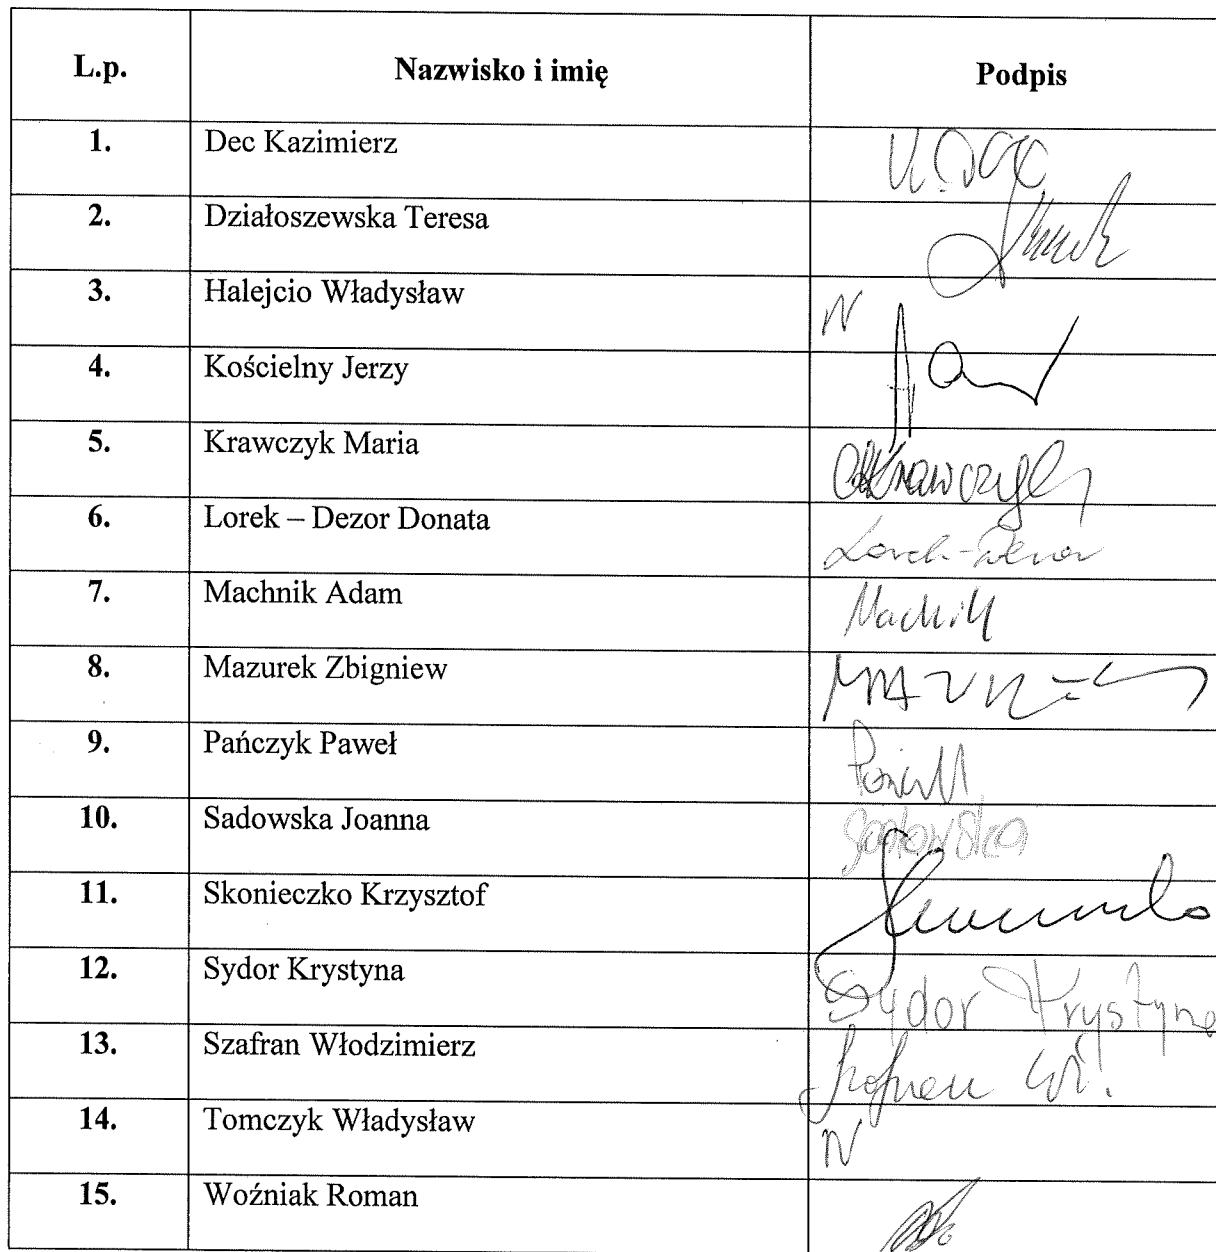 L.p. Nazwisko i imię Podpis
1. Dec Kazimierz K. Dec
2. Działoszewska Teresa
3. Halejcio Władysław N
4. Kościelny Jerzy
5. Krawczyk Maria Krawczyk
6. Lorek – Dezor Donata Lorek-Dezor
7. Machnik Adam Machnik
8. Mazurek Zbigniew MAZUREK
9. Pańczyk Paweł
10. Sadowska Joanna Sadowska
11. Skonieczko Krzysztof
12. Sydor Krystyna Sydor Krystyna
13. Szafran Włodzimierz Szafran Wł.
14. Tomczyk Władysław N
15. Woźniak Roman